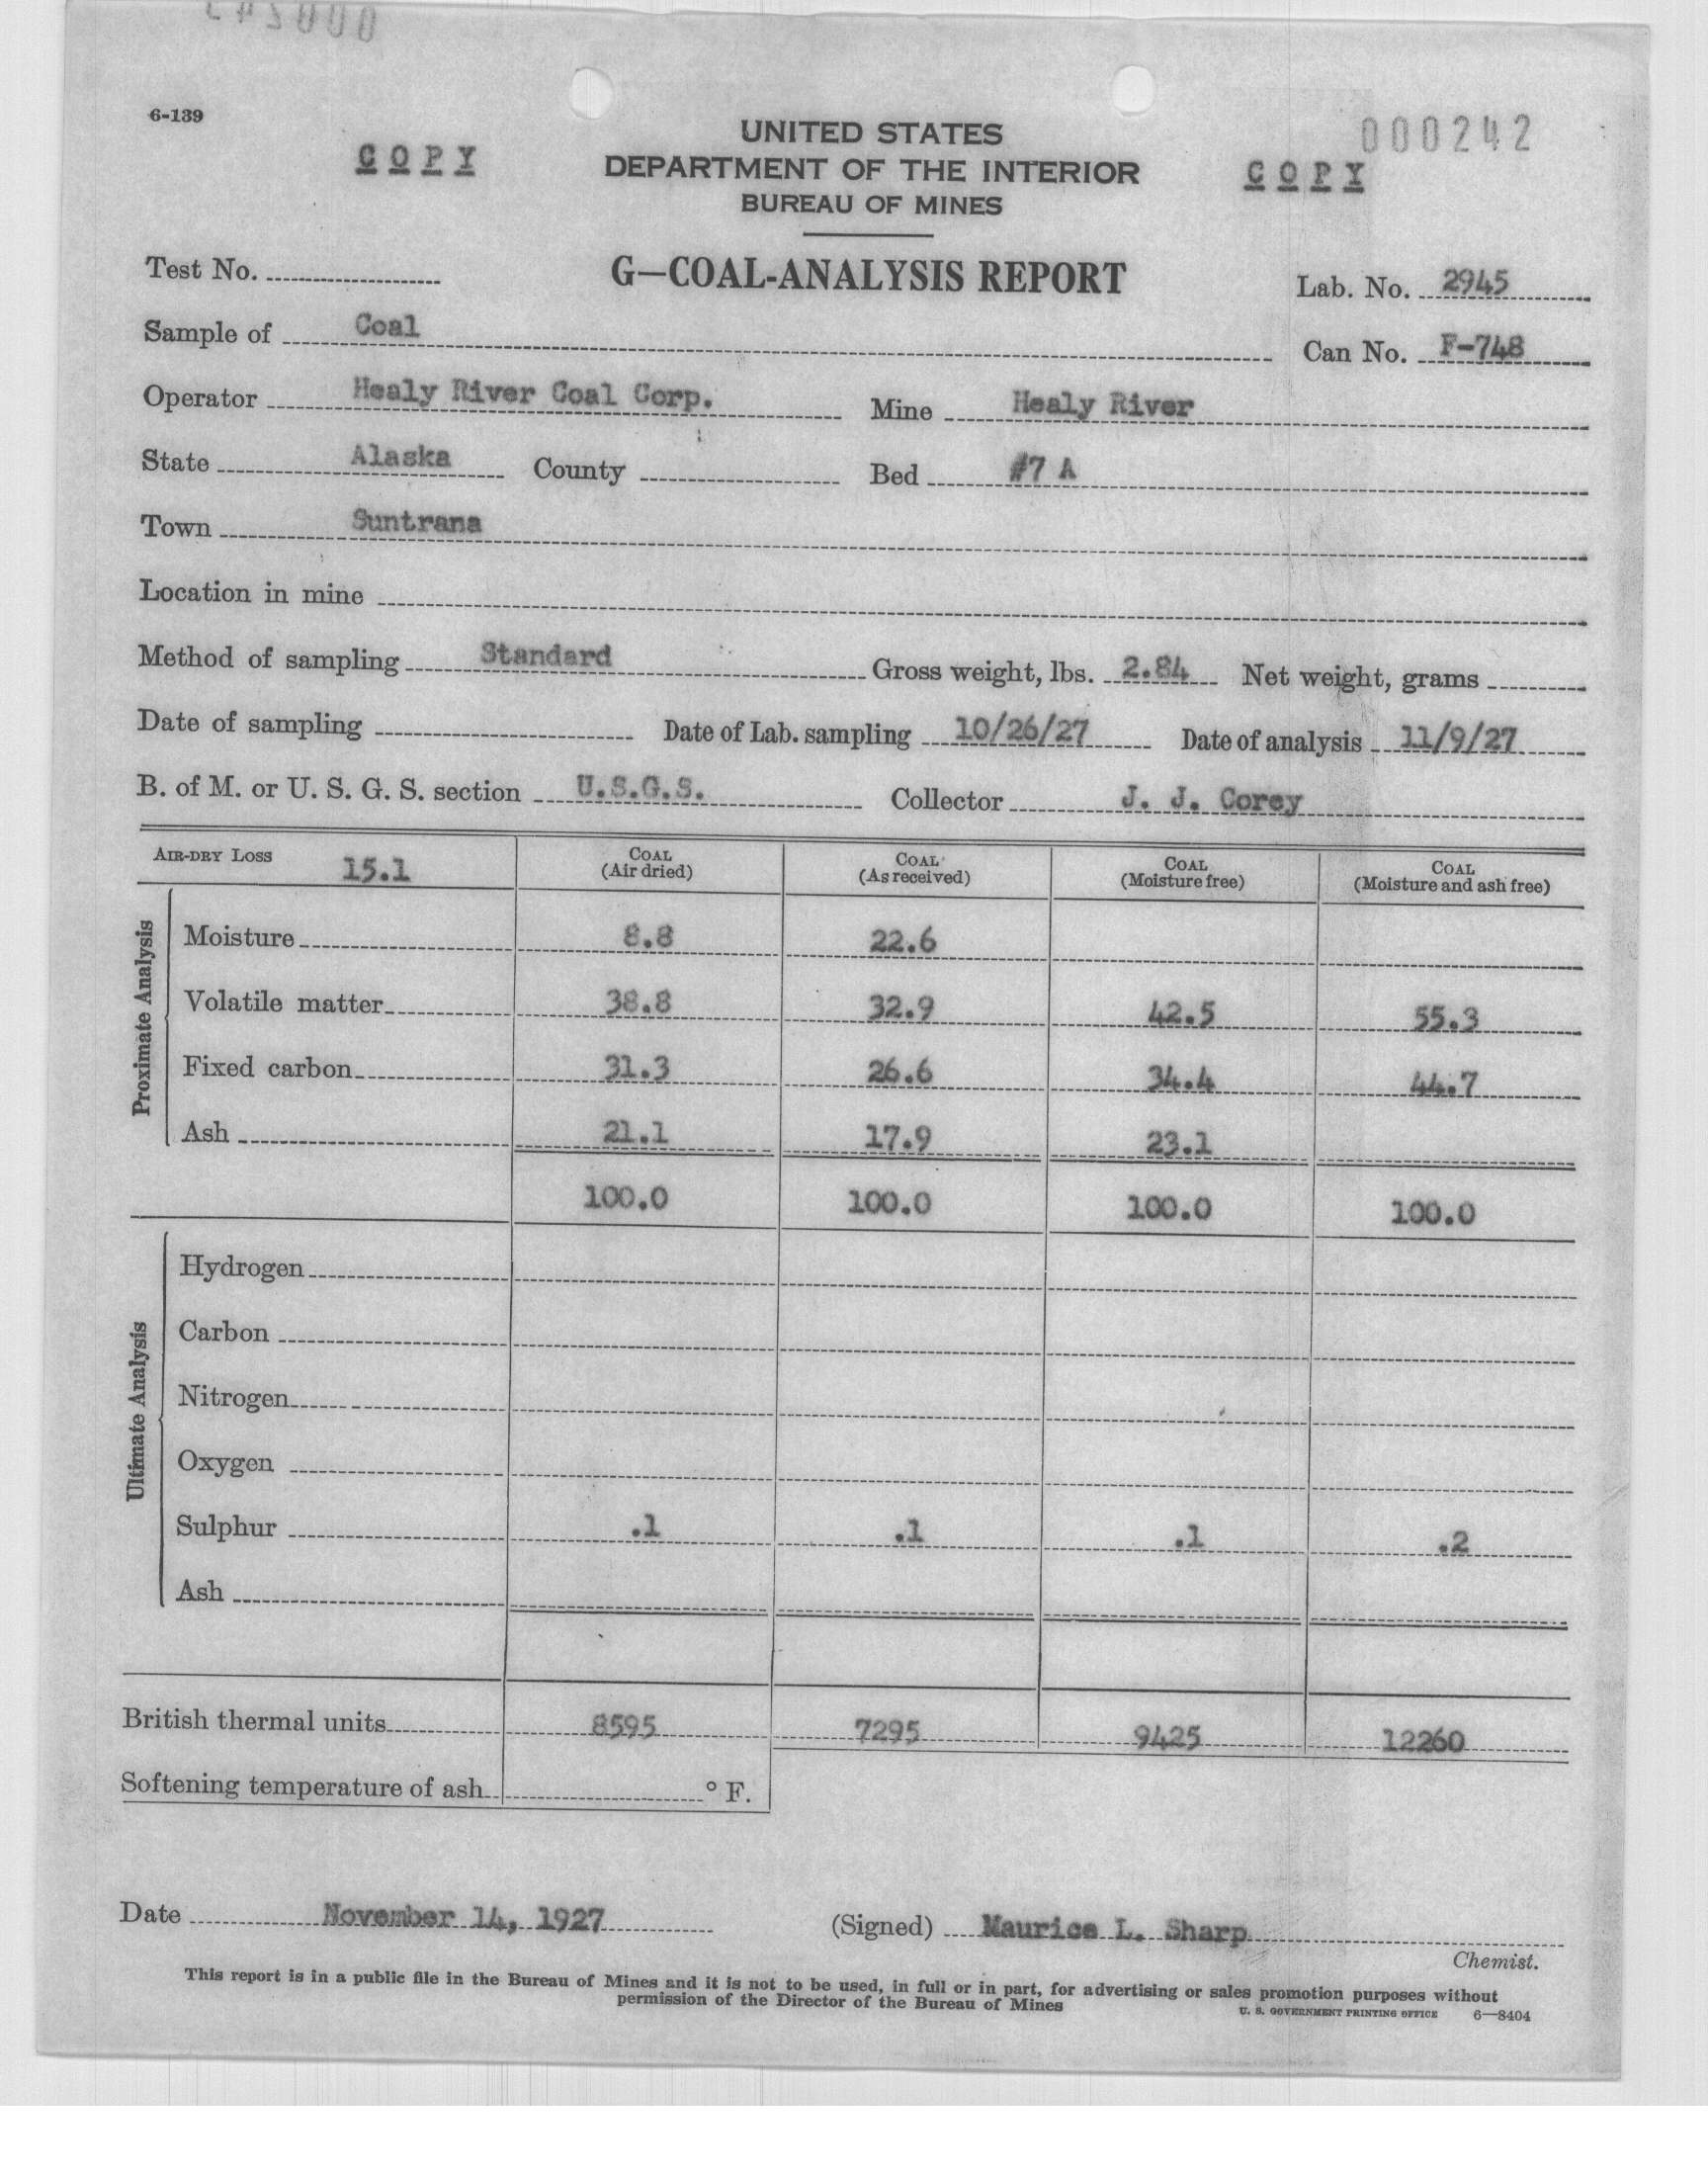 6-139
000242
COPY
UNITED STATES
DEPARTMENT OF THE INTERIOR
BUREAU OF MINES
COPY
Test No.
G—COAL-ANALYSIS REPORT
Lab. No. 2945
Sample of Coal
Can No. F-748
Operator Healy River Coal Corp. Mine Healy River
State Alaska County Bed #7 A
Town Suntrana
Location in mine
Method of sampling Standard Gross weight, lbs. 2.84 Net weight, grams
Date of sampling Date of Lab. sampling 10/26/27 Date of analysis 11/9/27
B. of M. or U. S. G. S. section U.S.G.S. Collector J. J. Corey
AIR-DRY LOSS 15.1 COAL (Air dried) COAL (As received) COAL (Moisture free) COAL (Moisture and ash free)
Proximate Analysis
Moisture 8.8 22.6
Volatile matter 38.8 32.9 42.5 55.3
Fixed carbon 31.3 26.6 34.4 44.7
Ash 21.1 17.9 23.1
100.0 100.0 100.0 100.0
Ultimate Analysis
Hydrogen
Carbon
Nitrogen
Oxygen
Sulphur .1 .1 .1 .2
Ash
British thermal units 8595 7295 9425 12260
Softening temperature of ash ° F.
Date November 14, 1927 (Signed) Maurice L. Sharp
Chemist.
This report is in a public file in the Bureau of Mines and it is not to be used, in full or in part, for advertising or sales promotion purposes without
permission of the Director of the Bureau of Mines
U. S. GOVERNMENT PRINTING OFFICE 6—8404